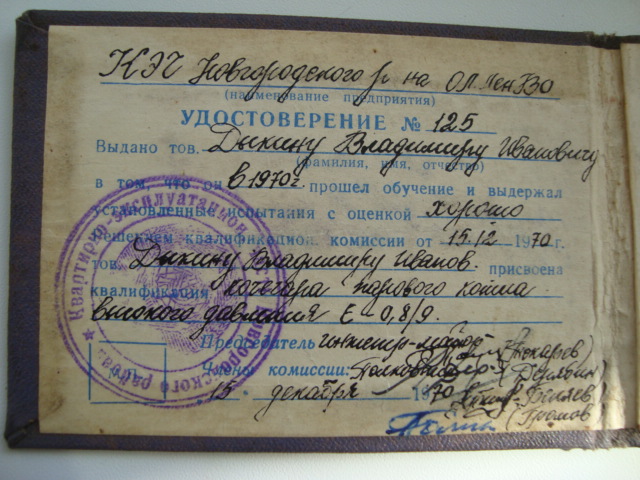 КЭЧ Новгородского р. на ОЛ. ЛенВО
(наименование предприятия)
УДОСТОВЕРЕНИЕ № 125
Выдано тов. Дыкину Владимиру Ивановичу
(фамилия, имя, отчество)
в том, что он в 1970г. прошел обучение и выдержал
установленные испытания с оценкой хорошо
решением квалификацион. комиссии от 15.12 1970 г.
тов. Дыкину Владимиру Иванов. присвоена
квалификация кочегара парового котла
высокого давления Е-0,8/9.
Председатель инженер-майор (Токарев)
Члены комиссии:
15 декабря 1970
(Громов
Квартирно эксплуатацион
ского района